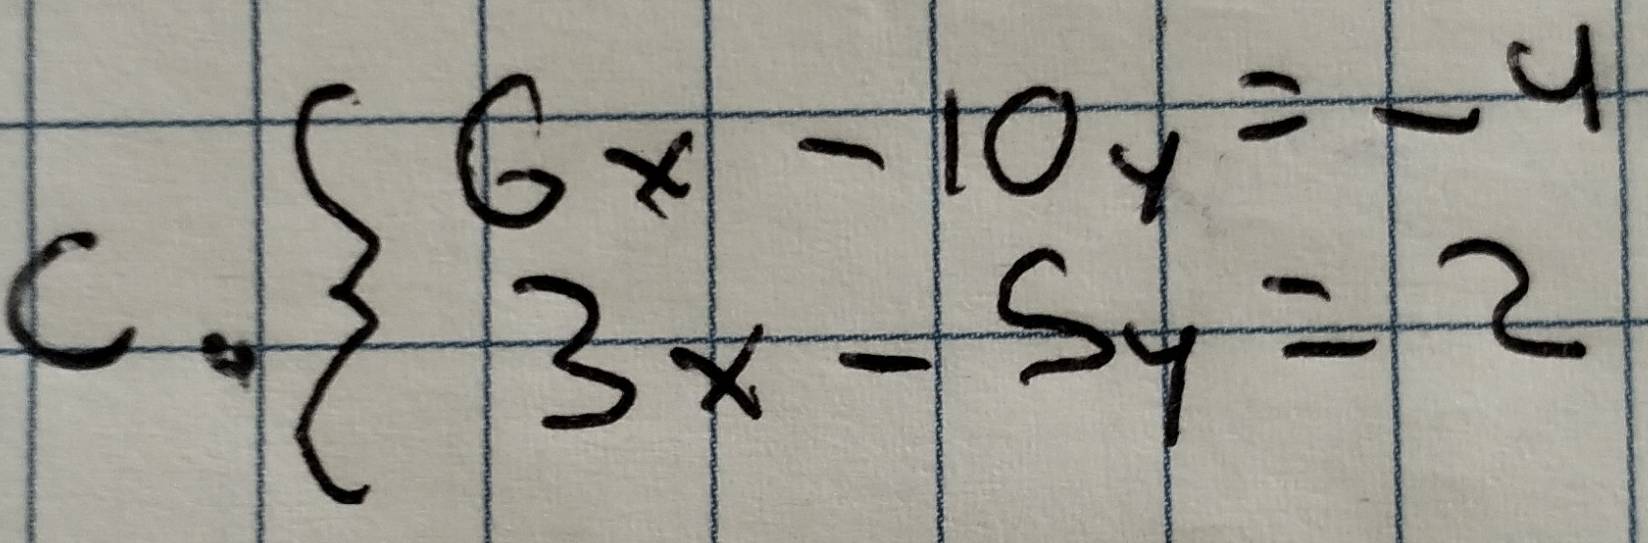 C. { 6x - 10y = -4
3x - 5y = 2